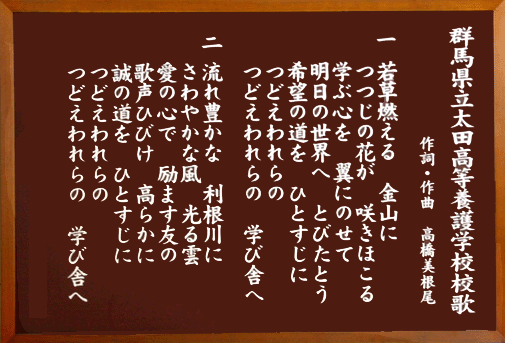 群馬県立太田高等養護学校校歌
作詞・作曲　高橋美根尾
一　若草燃える　金山に
つつじの花が　咲きほこる
学ぶ心を　翼にのせて
明日の世界へ　とびたとう
希望の道を　ひとすじに
つどえわれらの
つどえわれらの　学び舎へ
二　流れ豊かな　利根川に
さわやかな風　光る雲
愛の心で　励ます友の
歌声ひびけ　高らかに
誠の道を　ひとすじに
つどえわれらの
つどえわれらの　学び舎へ